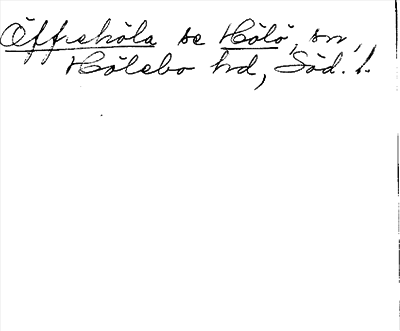 Öffsehöla se Hölö, sn,
Hölebo hd, Söd. l.